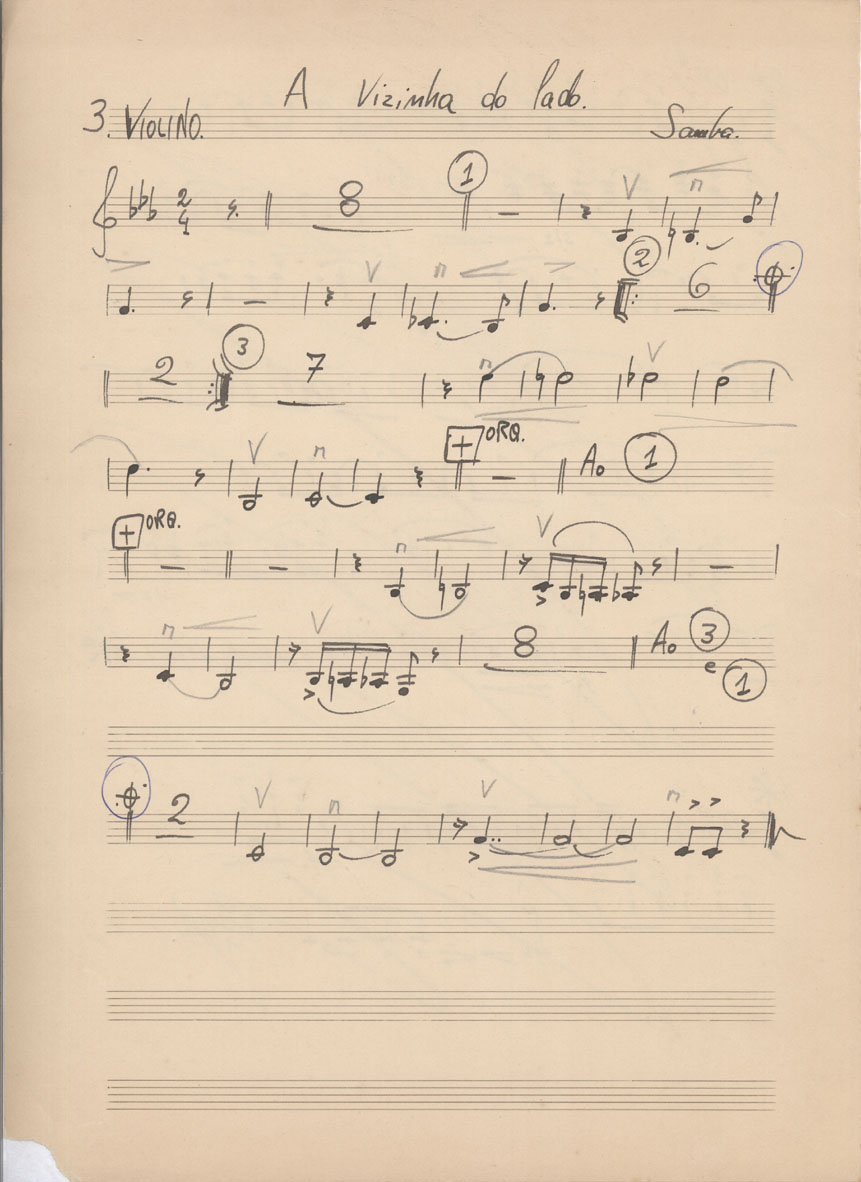 A Vizinha do lado.
3. VIOLINO. Samba.
2
4
8
1
2
6
2
3
7
+ ORQ.
Ao 1
+ ORQ.
8
Ao 3
e 1
2